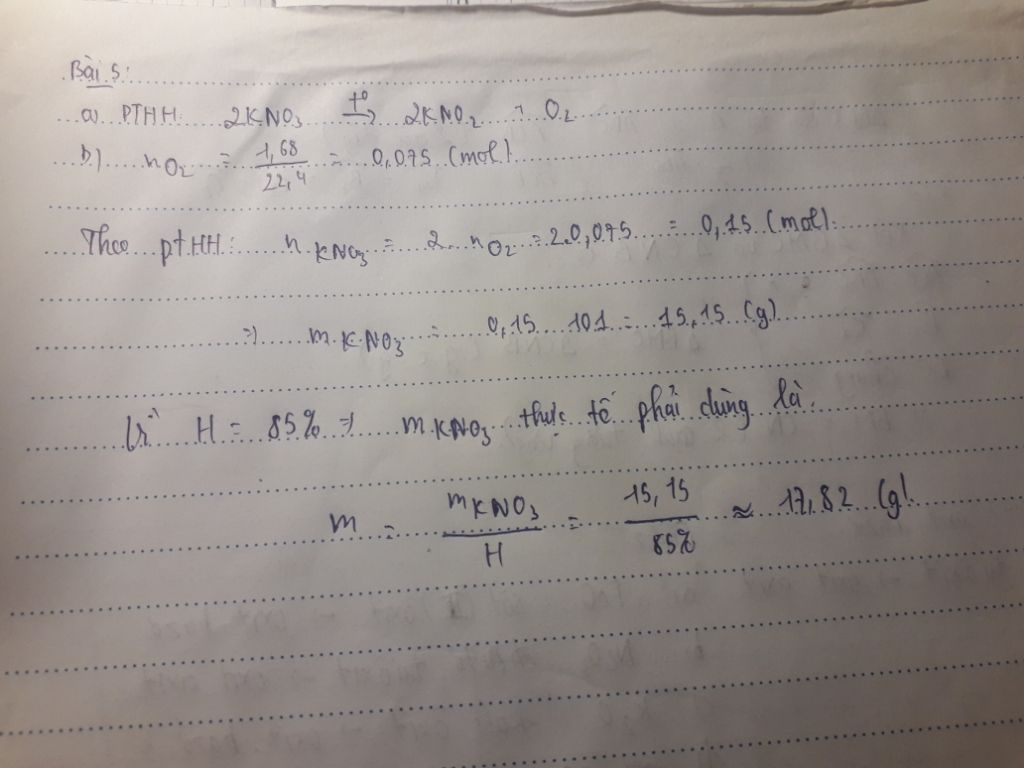 Bài 5:
a) PTHH: 2KNO₃ →(t°) 2KNO₂ + O₂
b) nO₂ = 1,68 / 22,4 = 0,075 (mol)
Theo ptHH: nKNO₃ = 2.nO₂ = 2.0,075 = 0,15 (mol)
=> mKNO₃ = 0,15 . 101 = 15,15 (g)
Vì H = 85% => mKNO₃ thực tế phải dùng là:
m = mKNO₃ / H = 15,15 / 85% ≈ 17,82 (g)